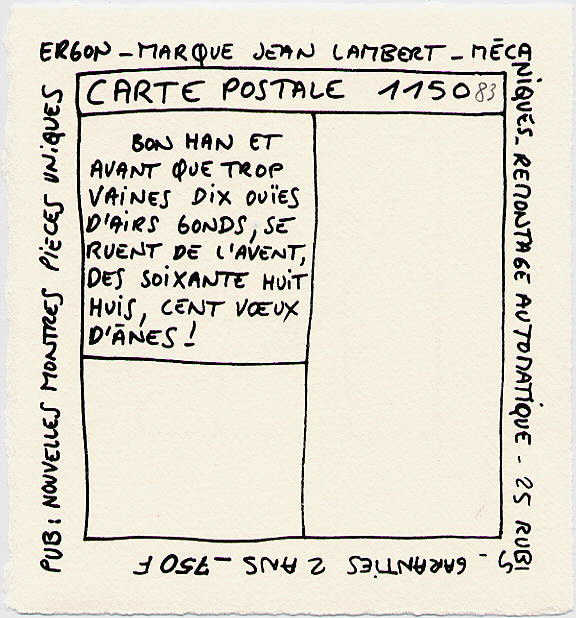 ERGON - MARQUE JEAN LAMBERT - MÉCANIQUES - REMONTAGE AUTOMATIQUE - 25 RUBIS - GARANTIES 2 ANS - 750 F
PUB: NOUVELLES MONTRES PIÈCES UNIQUES
CARTE POSTALE 1150 83
BON HAN ET
AVANT QUE TROP
VAINES DIX OUÏES
D'AIRS GONDS, SE
RUENT DE L'AVENT,
DES SOIXANTE HUIT
HUIS, CENT VŒUX
D'ÂNES !